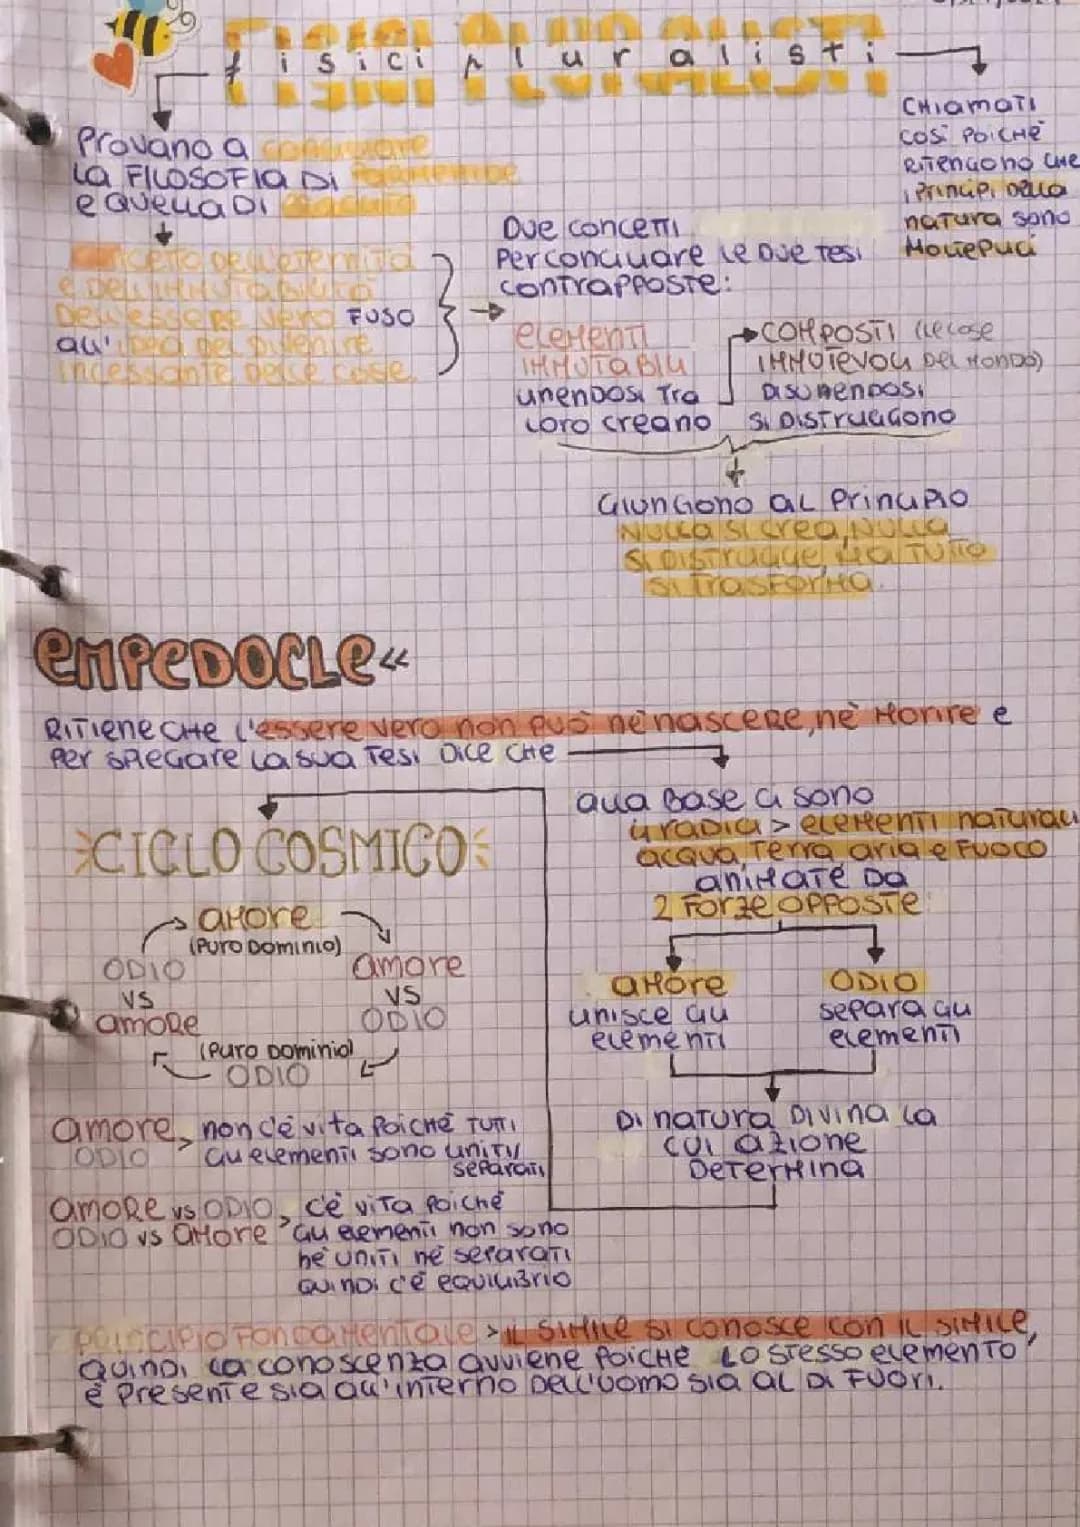 fisici pluralisti
CHIAMATI
COSÌ POICHÉ
RITENGONO CHE
I PRINCIPI DELLA
NATURA SONO
MOLTEPLICI
Provano a conciliare
LA FILOSOFIA DI
e quella DI
CONCETTO DELL'ETERNITÀ
e DELL'IMMUTABILITÀ
DELL'ESSERE VERO FUSO
all'IDEA DEL DIVENIRE
INCESSANTE DELLE COSE
Due concetti
Per conciliare le due tesi
contrapposte:
elementi
IMMUTABILI
unendosi Tra
loro creano
COMPOSTI (le cose
IMMOTEVOLI DEL MONDO)
DISUNENDOSI
SI DISTRUGGONO
GIUNGONO AL PRINCIPIO
NULLA SI CREA, NULLA
SI DISTRUGGE, MA TUTTO
SI TRASFORMA.
EMPEDOCLE«
RITIENE CHE l'essere vero non può né nascere, né morire e
per spiegare la sua tesi dice che
alla base ci sono
4 radici > elementi naturali
acqua, terra, aria e fuoco
animate da
2 forze opposte
amore
unisce gli
elementi
ODIO
separa gli
elementi
Di natura divina la
cui azione
determina
CICLO COSMICO
amore
(PURO DOMINIO)
ODIO
VS
amore
amore
VS
ODIO
(PURO DOMINIO)
ODIO
amore, non c'è vita poiché TUTTI
ODIO > gli elementi sono uniti/
separati
amore vs ODIO, c'è vita poiché
ODIO vs amore > gli elementi non sono
né uniti né separati
quindi c'è equilibrio
PRINCIPIO FONDAMENTALE > IL SIMILE SI CONOSCE CON IL SIMILE,
quindi la conoscenza avviene poiché lo stesso elemento
è presente sia all'interno dell'uomo sia al di fuori.